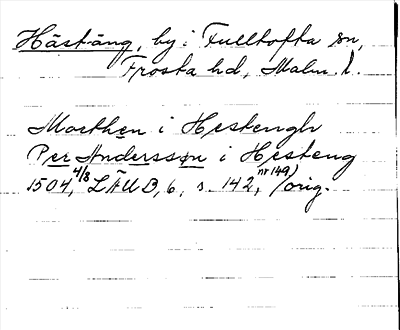 Hästäng, by i Fulltofta sn,
Frosta hd, Malm. l.
Morthen i Hestengh
Per Andersson i Hesteng
1504, 4/3 LÄUB, 6, s. 142, (nr 149) orig.